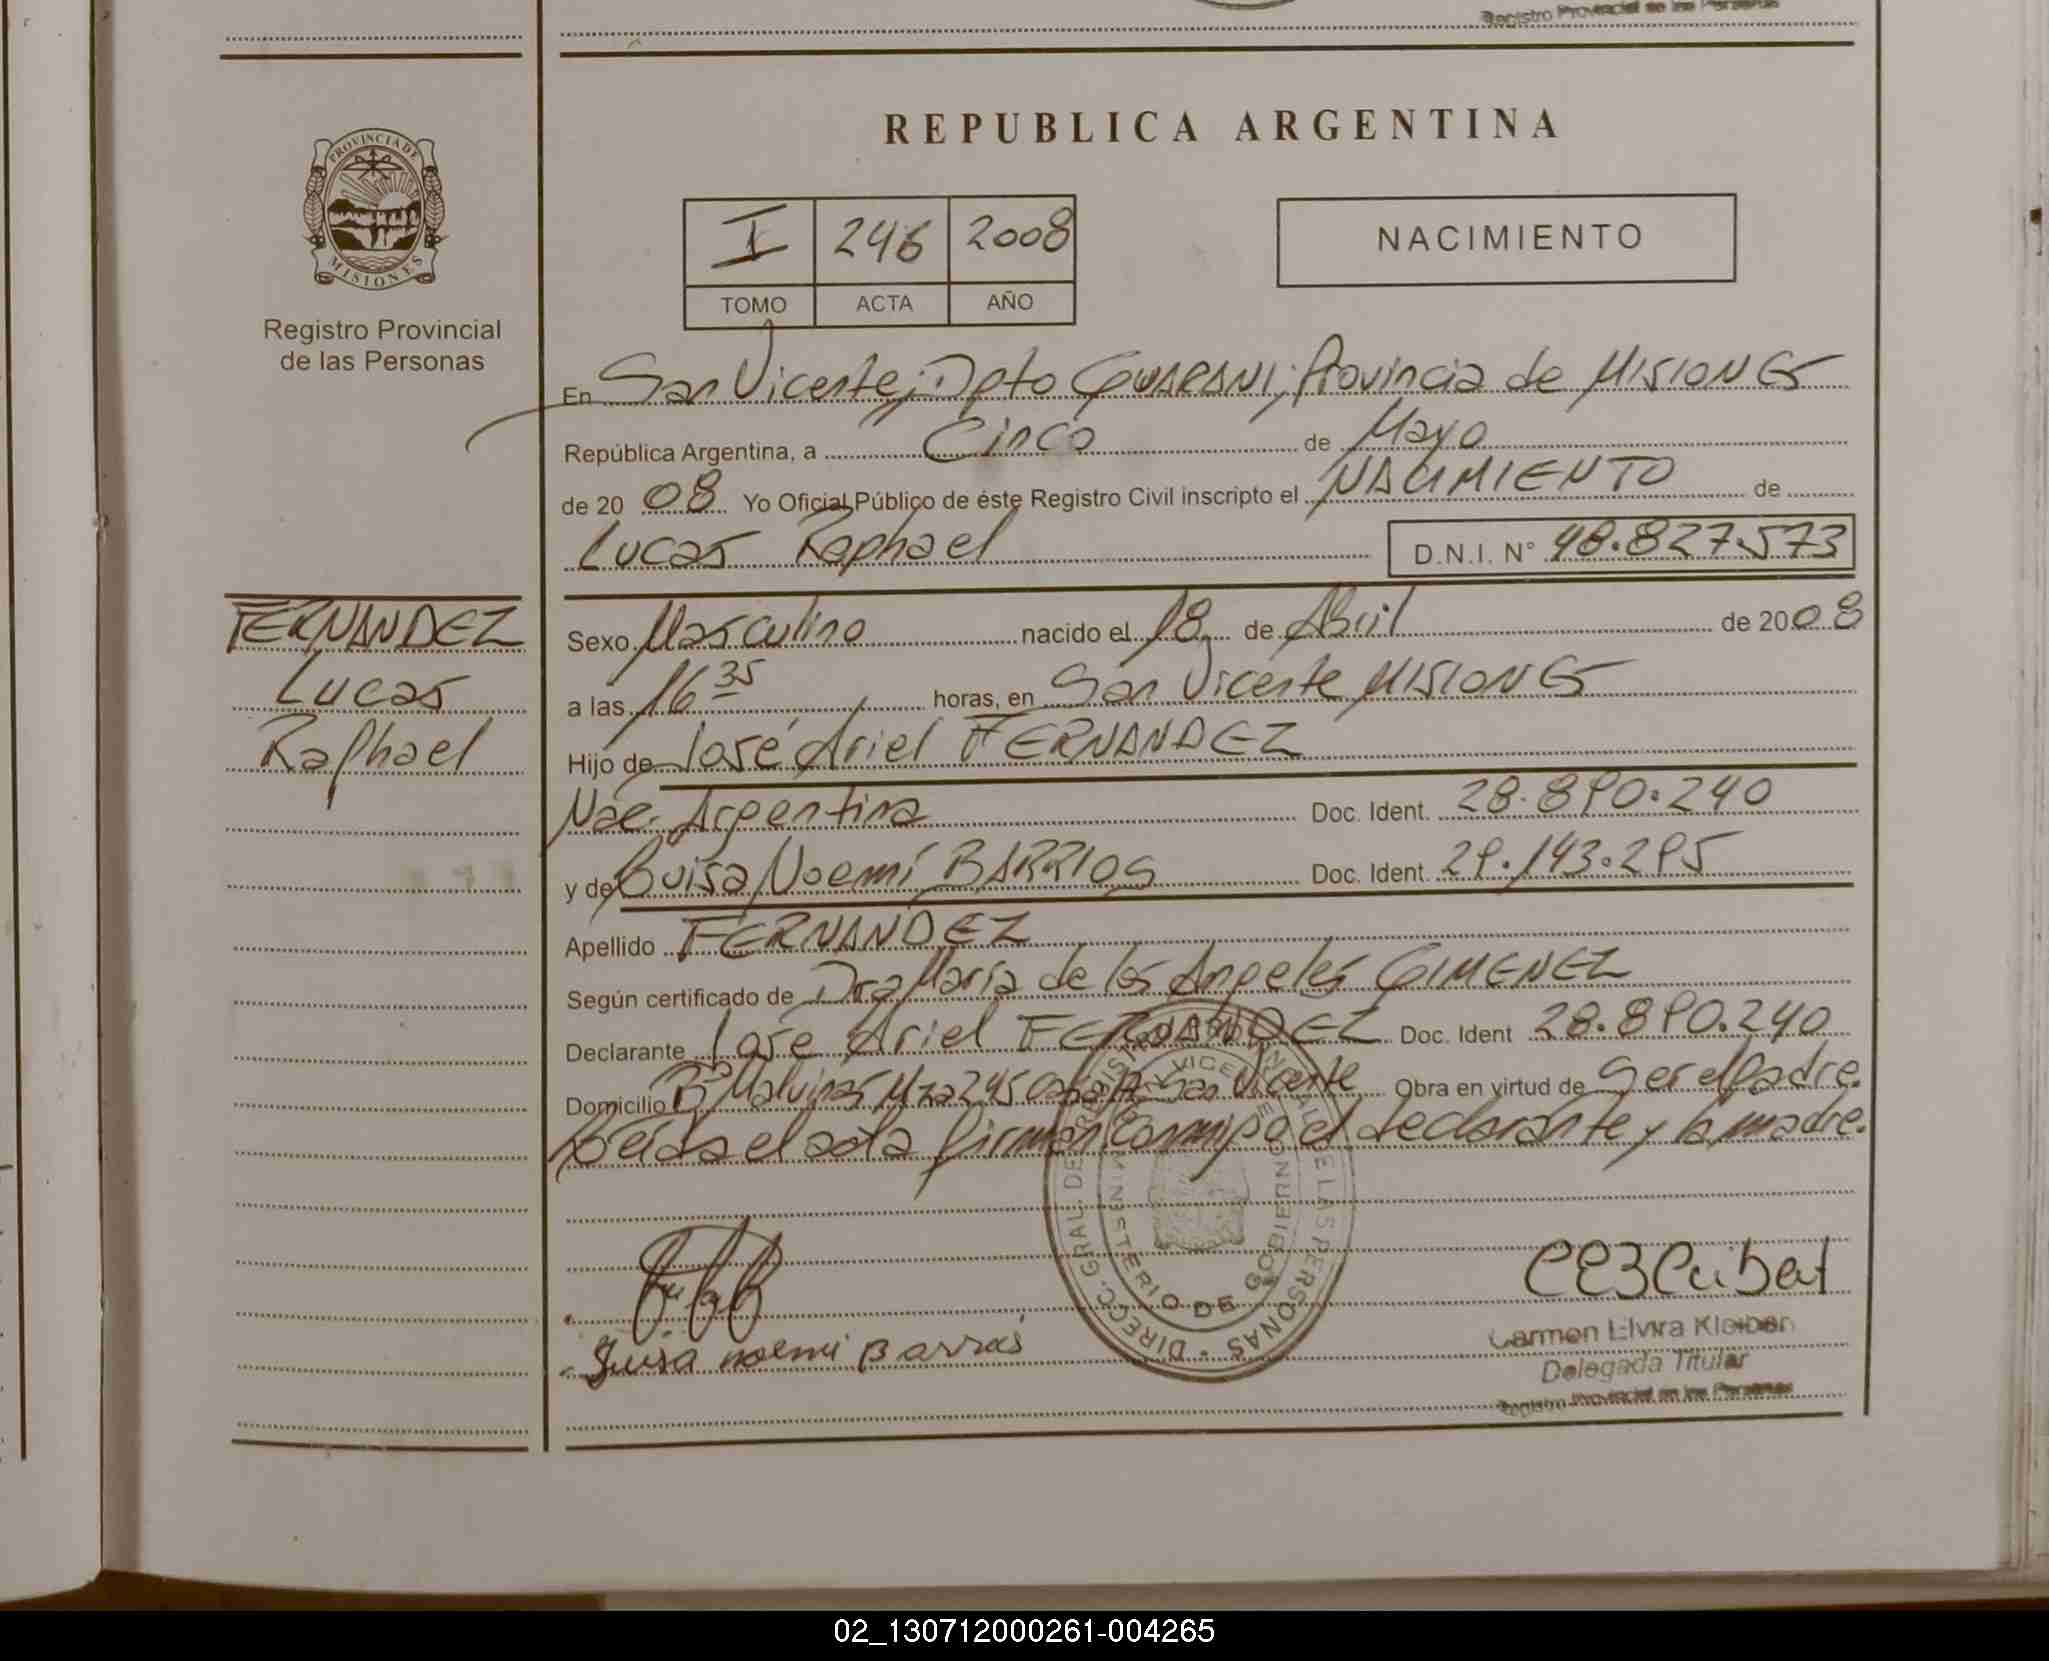 Registro Provincial de las Personas
REPUBLICA ARGENTINA
PROVINCIA DE
MISIONES
Registro Provincial
de las Personas
I 246 2008
TOMO ACTA AÑO
NACIMIENTO
En San Vicente; Dpto GUARANI; Provincia de MISIONES
República Argentina, a Cinco de Mayo
de 20 08 Yo Oficial Público de éste Registro Civil inscripto el NACIMIENTO de
Lucas Raphael D.N.I. N° 48.827.573
FERNANDEZ
Lucas
Raphael
Sexo Masculino nacido el 18 de Abril de 2008
a las 16 35 horas, en San Vicente MISIONES
Hijo de José Ariel FERNANDEZ
Nac. Argentina Doc. Ident. 28.890.240
y de Luisa Noemí BARRIOS Doc. Ident. 29.143.295
Apellido FERNANDEZ
Según certificado de Dra María de los Angeles GIMENEZ
Declarante José Ariel FERNANDEZ Doc. Ident 28.890.240
Domicilio Bº Malvinas Mza 245 San Vicente Obra en virtud de Ser el Padre.
Leída el acta firman conmigo el declarante y la madre.
DIRECC. GRAL. DE REGISTRO PROVINCIAL DE LAS PERSONAS
MINISTERIO DE GOBIERNO
Luisa noemi Barrios
Carmen Elvira Kleiber
Delegada Titular
Registro Provincial de las Personas
02_130712000261-004265